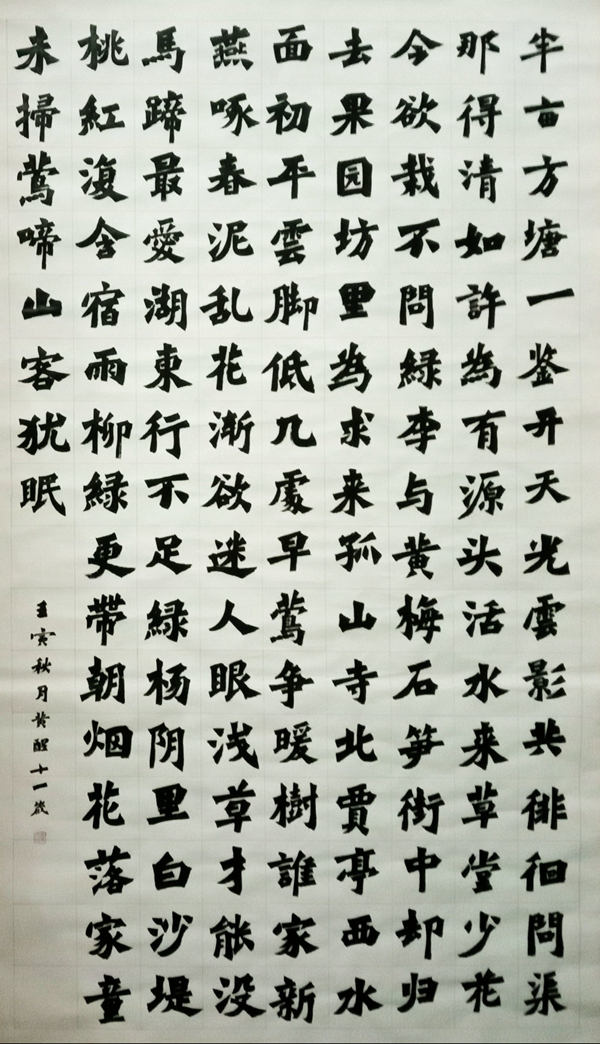 半亩方塘一鉴开天光雲影共徘徊問渠
那得清如許為有源头活水来草堂少花
今欲栽不問緑李与黄梅石笋街中却归
去果园坊里為求来孤山寺北賈亭西水
面初平雲脚低几處早莺争暖樹誰家新
燕啄春泥乱花渐欲迷人眼浅草才能没
馬蹄最愛湖東行不足緑杨阴里白沙堤
桃紅復含宿雨柳緑更帶朝烟花落家童
未掃莺啼山客犹眠
壬寅秋月黄醒十一歲